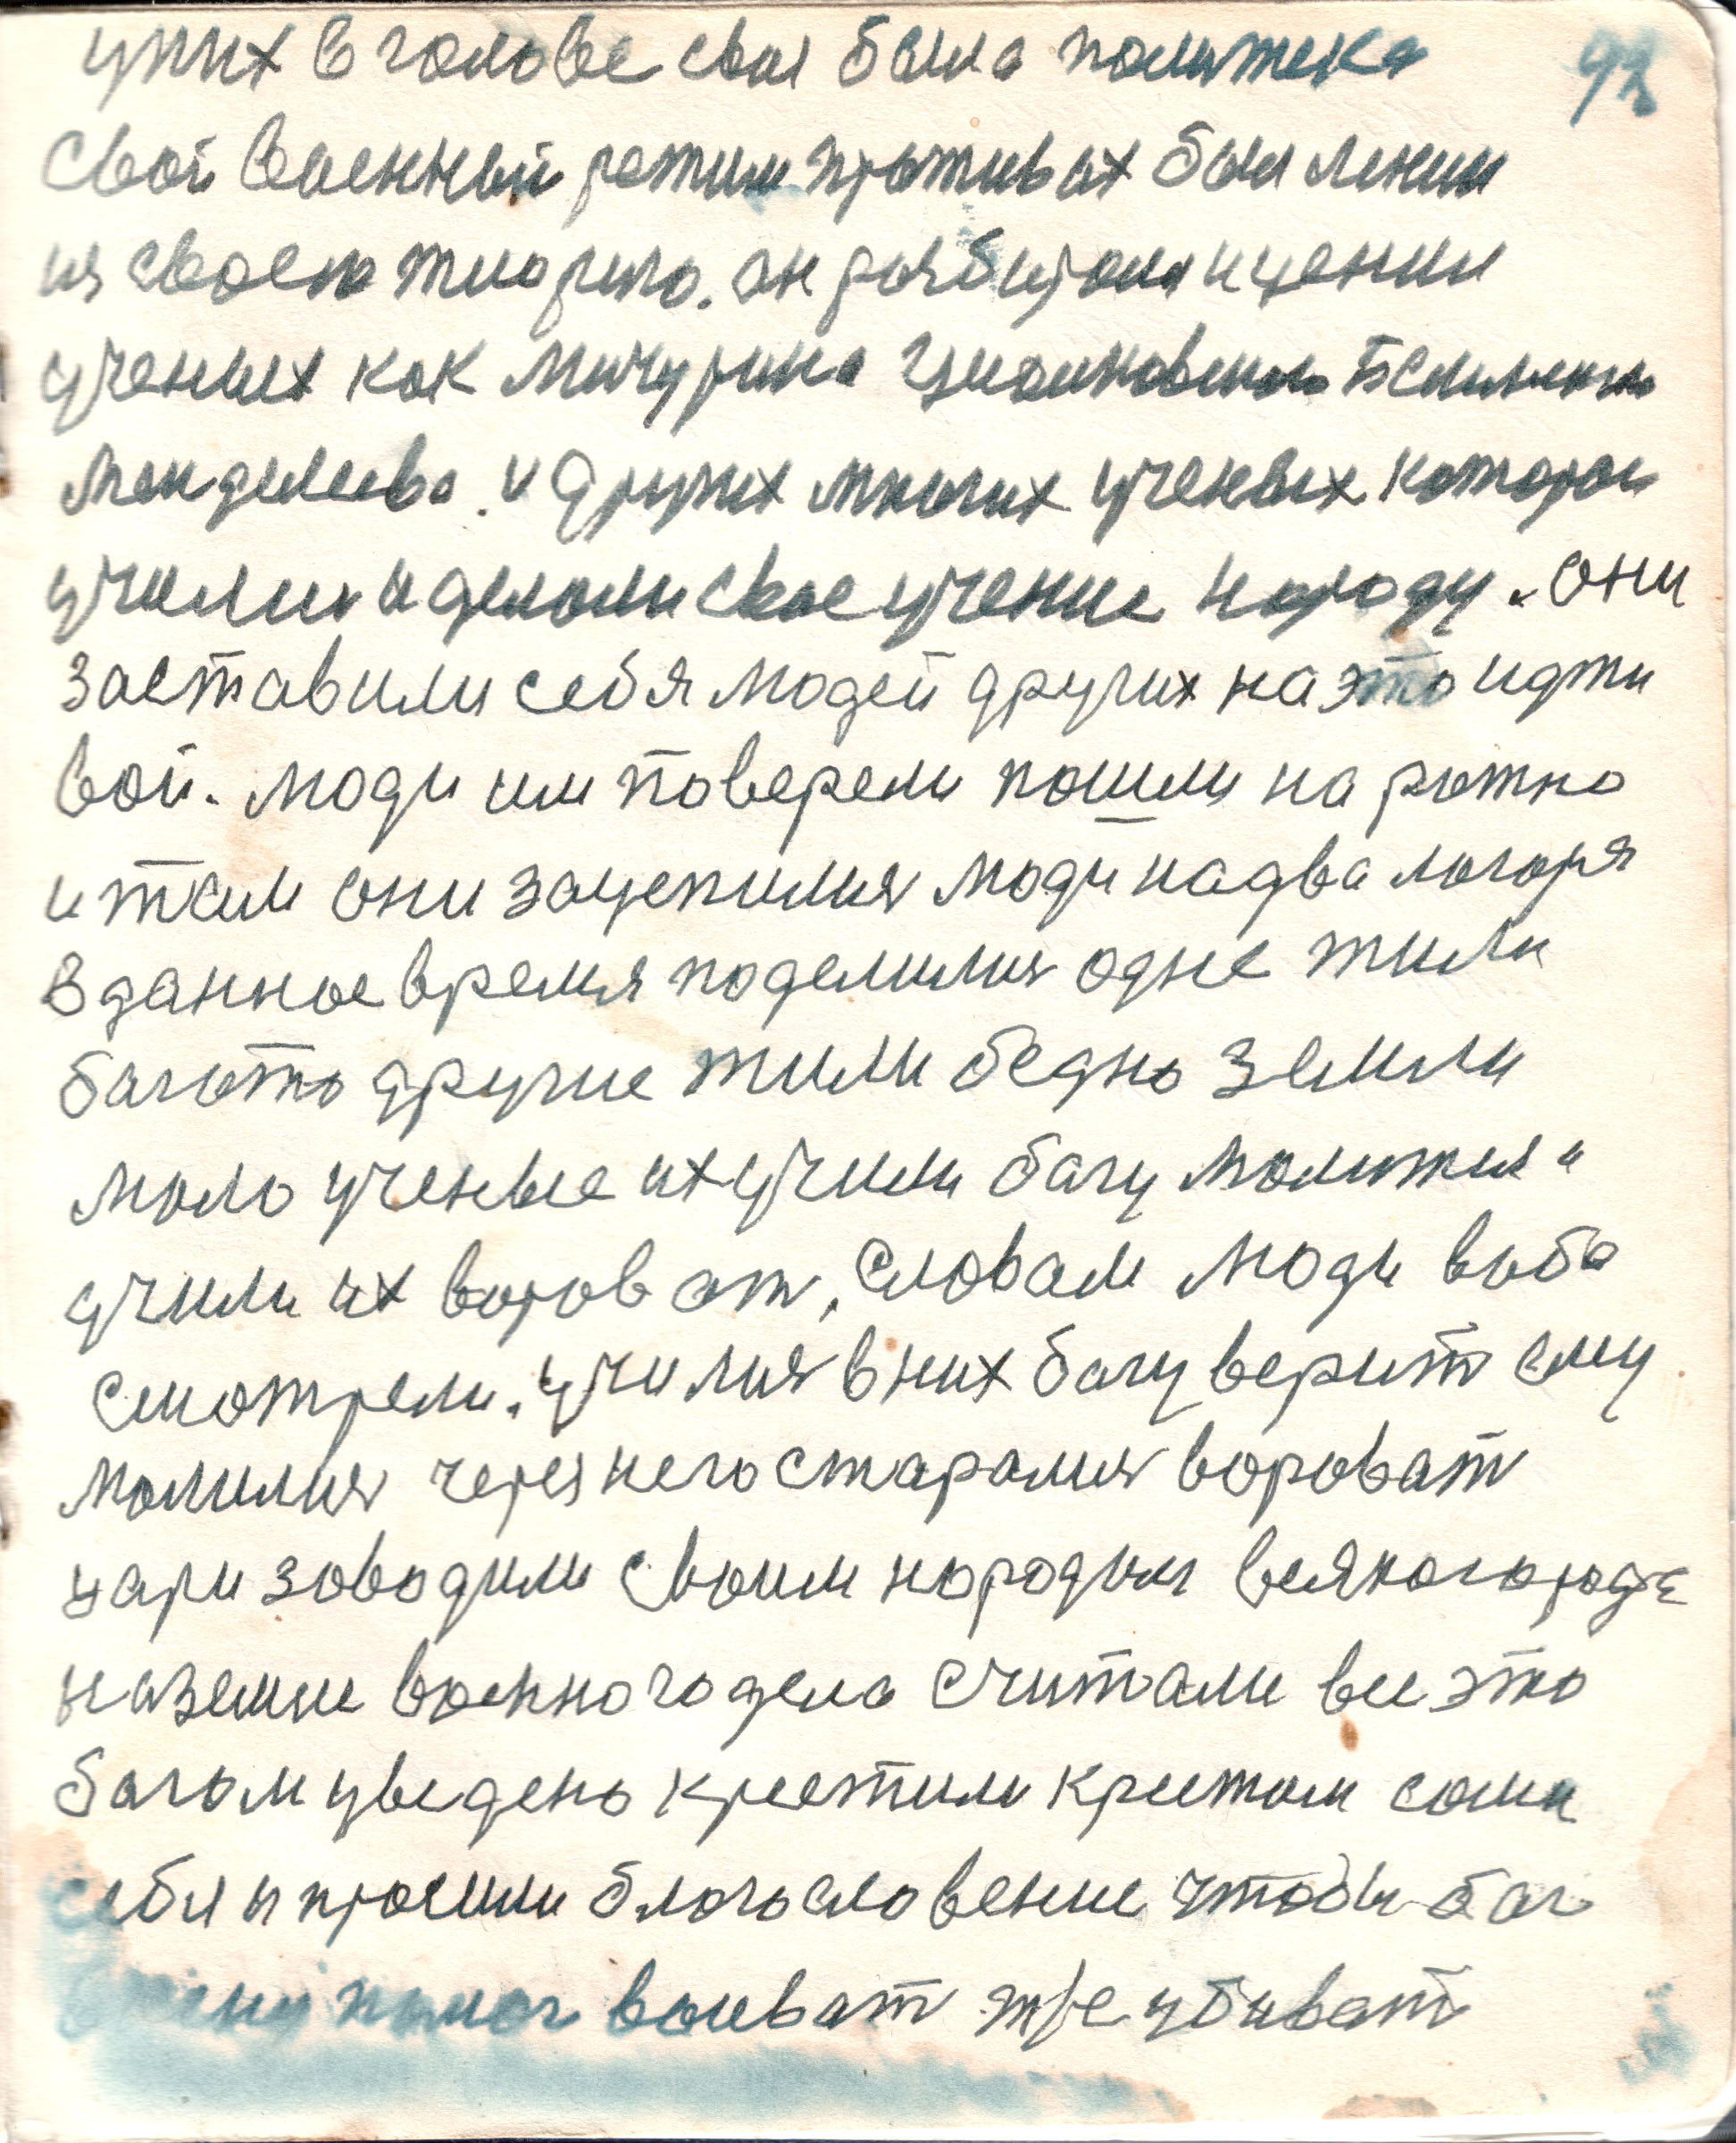 92
уних в голове своя была политека
свой военный режим против их был ленин
из своею тиорию. он
ученых как мичурина
менделеева. и других многих ученых которои
училии и делоли свое учение народу. они
заставили себя людей других на это идти
вой. люди им поверели пошли на рожно
и тем они зацепилися люди на два логоря
в данное время поделилися одне жили
багото другие жили бедно земли
мало ученые их учили багу молится и
учили их вороват, словам люди воба
смотрели. училися в них багу верит ему
молилися через него старалися вороват
цари заводили своим народам всякого роде
на земле военного дела считали все это
багом узведено крестили крестом сами
себя и просили благословение чтобы баг
ему помог воеват жре убиват